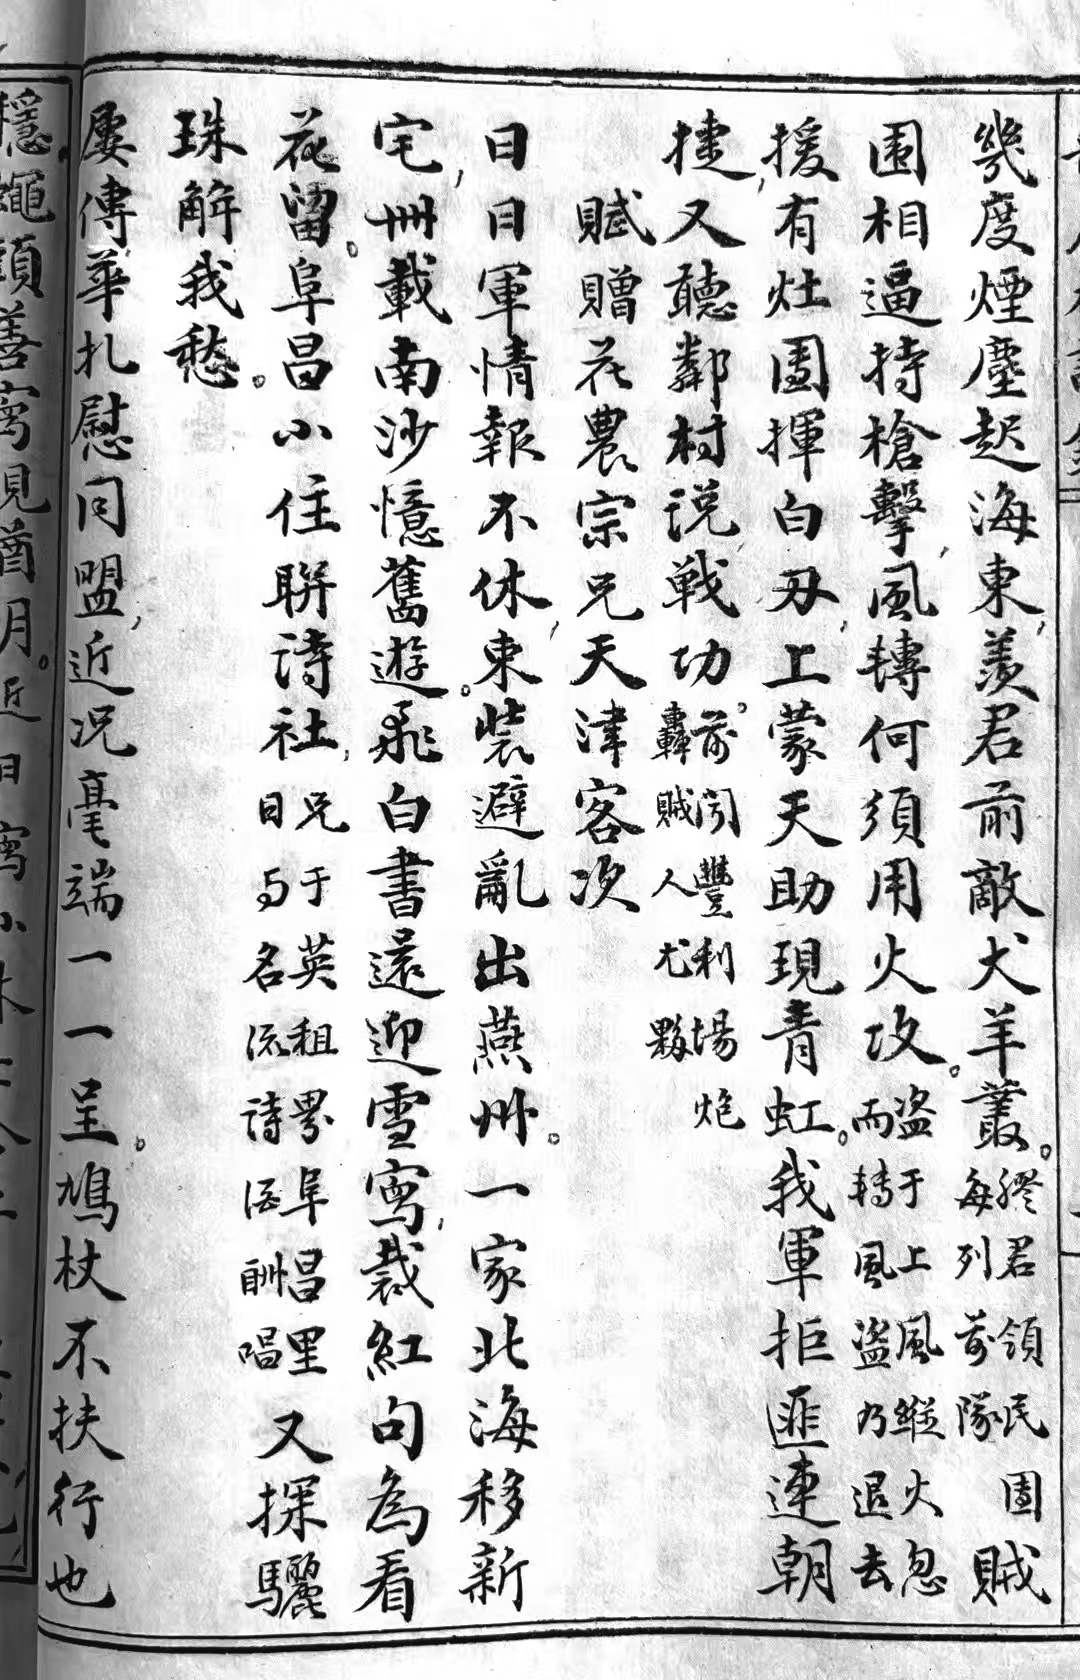 幾度煙塵起海東羨君前敵犬羊叢膠君領民團每列前隊賊
圍相逼持槍擊風轉何須用火攻盜于上風縱火忽而轉風盜乃退去
援有灶圖揮白刃上蒙天助現青虹我軍拒匪連朝
捷又聽鄰村説戦功前聞豐利場炮轟賊人尤夥
賦贈花農宗兄天津客次
日日軍情報不休東裝避亂出燕州一家北海移新
宅卌載南沙憶舊遊飛白書還迎雪寫裁紅句為看
花留阜昌小住聯詩社兄于英租界阜昌里日与名流詩酒酬唱又探驪
珠解我愁
屢傳華札慰同盟近况毫端一一呈鳩杖不扶行也
穩蠅頭善寫視猶明近日寫小